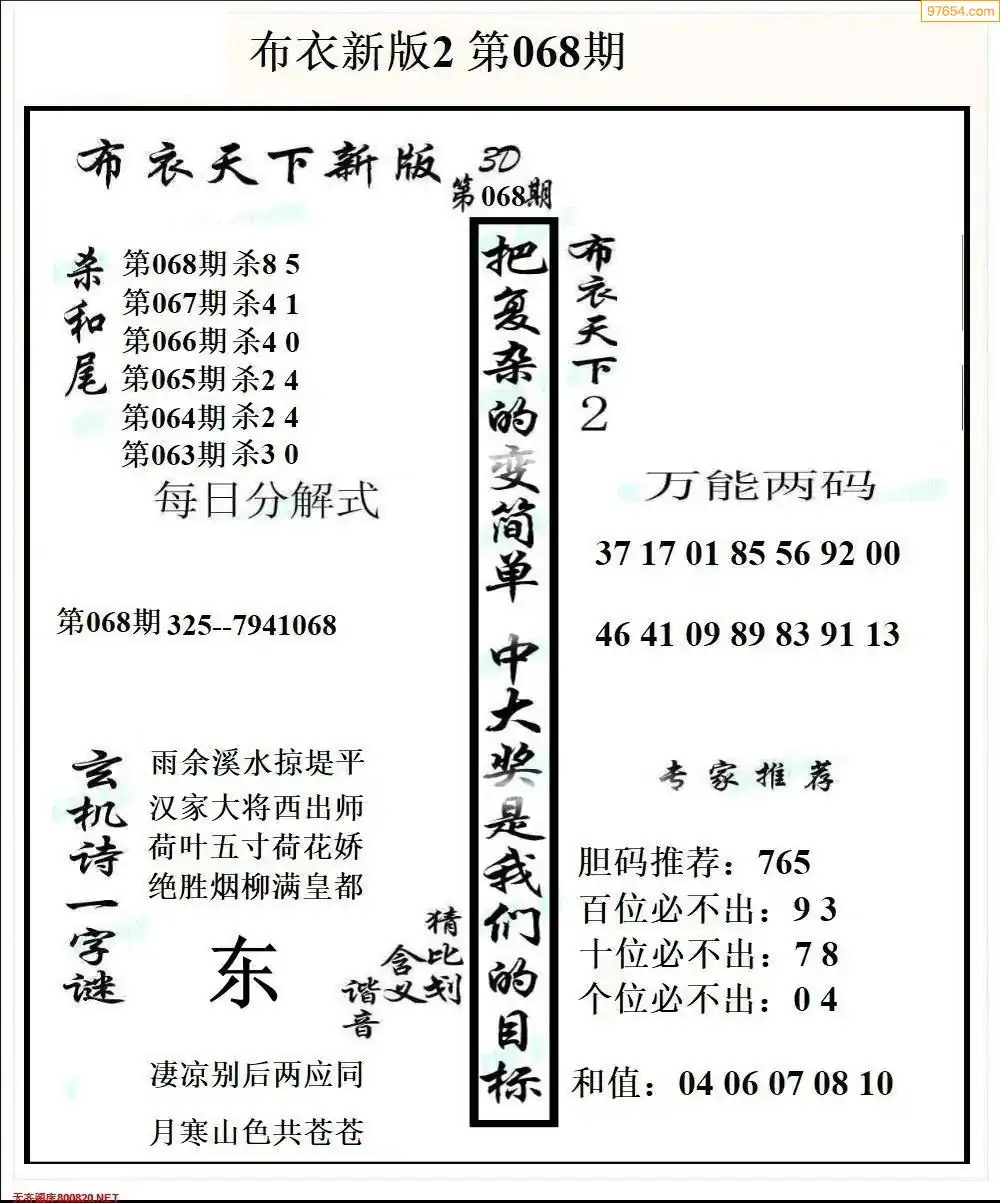 97654.com
布衣新版2 第068期
布衣天下新版
3D
第068期
杀和尾
第068期 杀8 5
第067期 杀4 1
第066期 杀4 0
第065期 杀2 4
第064期 杀2 4
第063期 杀3 0
每日分解式
第068期 325--7941068
玄机诗一字谜
雨余溪水掠堤平
汉家大将西出师
荷叶五寸荷花娇
绝胜烟柳满皇都
东
猜比划
含义
谐音
凄凉别后两应同
月寒山色共苍苍
把复杂的变简单 中大奖是我们的目标
布衣天下2
万能两码
37 17 01 85 56 92 00
46 41 09 89 83 91 13
专家推荐
胆码推荐：765
百位必不出：9 3
十位必不出：7 8
个位必不出：0 4
和值：04 06 07 08 10
天齐图库800820.NET